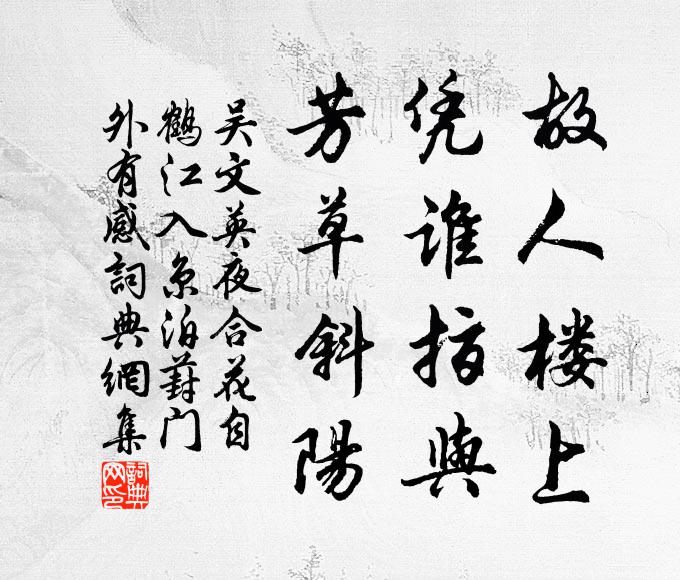 故人楼上
凭谁指與
芳草斜陽
吴文英夜合花自
鹤江入京泊葑门
外有感詞典網集
詞典網印